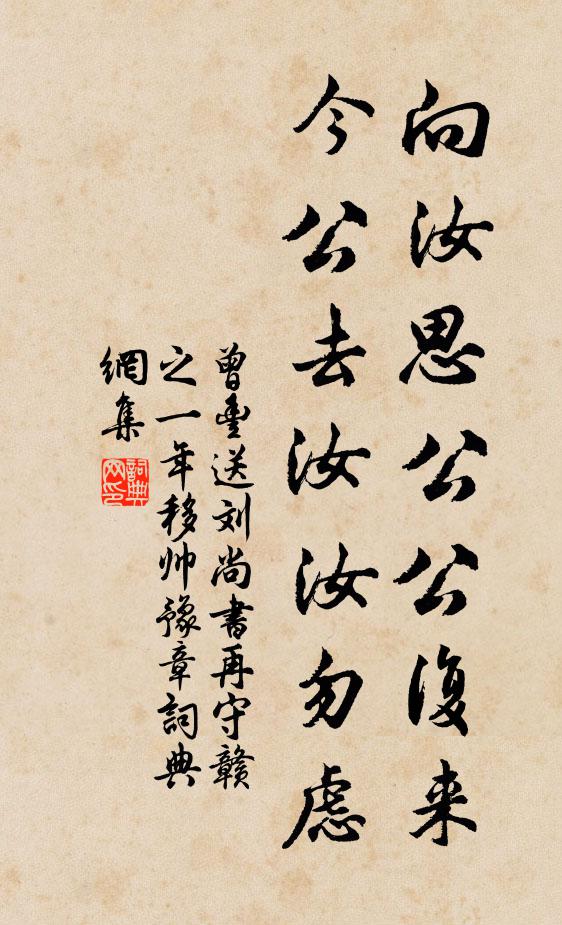 向汝思公公復来
今公去汝汝勿慮
曾豊送刘尚書再守贛
之一年移帅豫章詞典
網集
詞典
网印